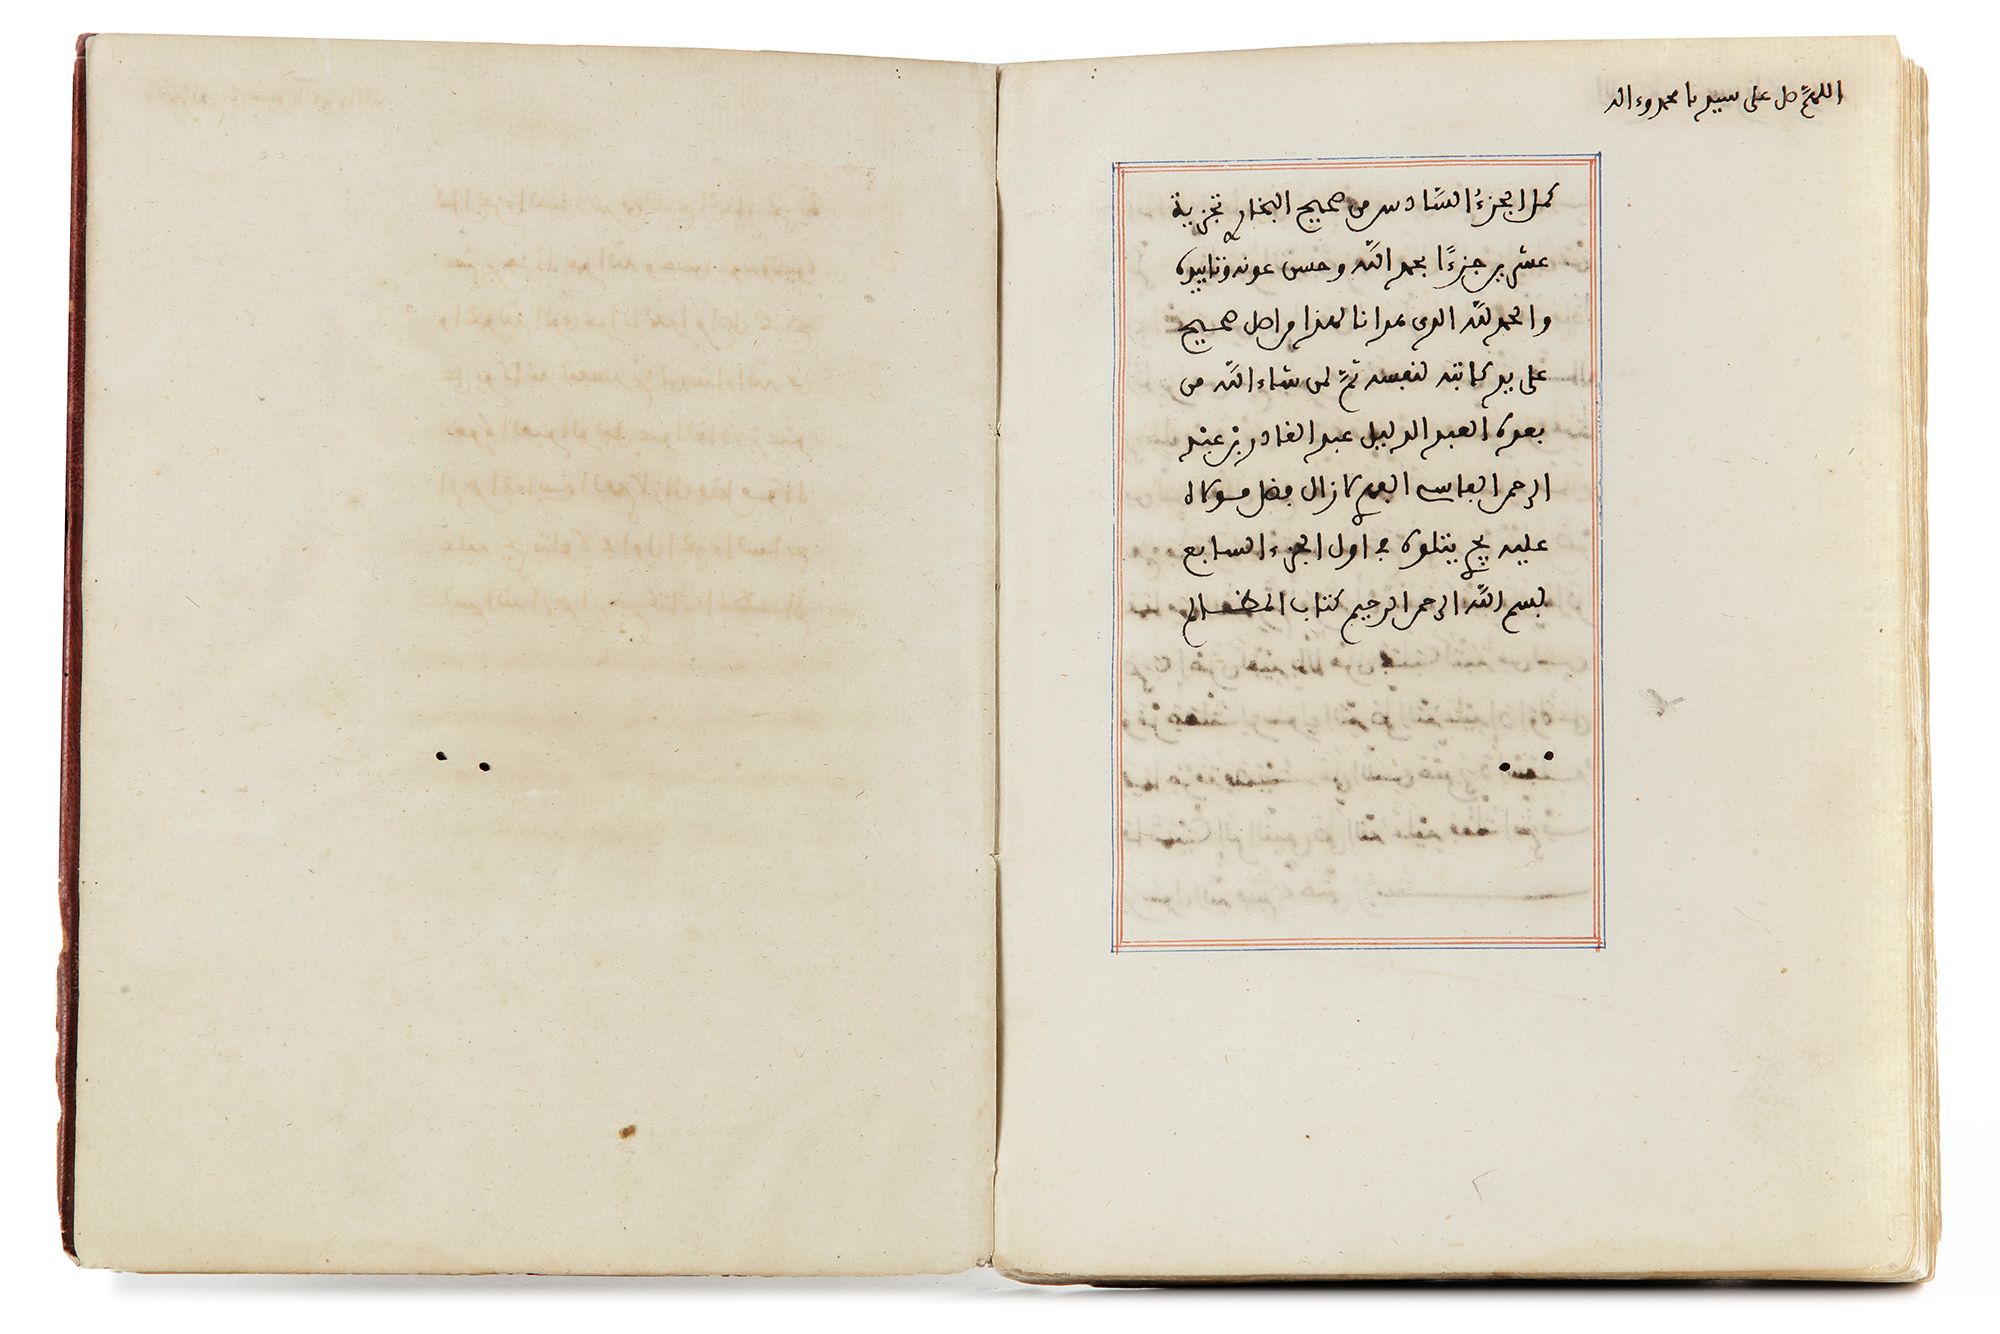 اللهم صل على سيدنا محمد وءاله
كمل الجزء السادس من صحيح البخاري تجزية
عشرين جزءا بحمد الله وحسن عونه وتاييده
والحمد لله الذي هدانا لهذا واصل صحيح
على يد كاتبه لنفسه ثم لمن شاء الله من
بعده العبد الذليل عبد القادر بن عبد
الرحمن الفاسي الفهري لا زال فضل مولاه
عليه يتلوه في اول الجزء السابع
بسم الله الرحمن الرحيم كتاب المظالم